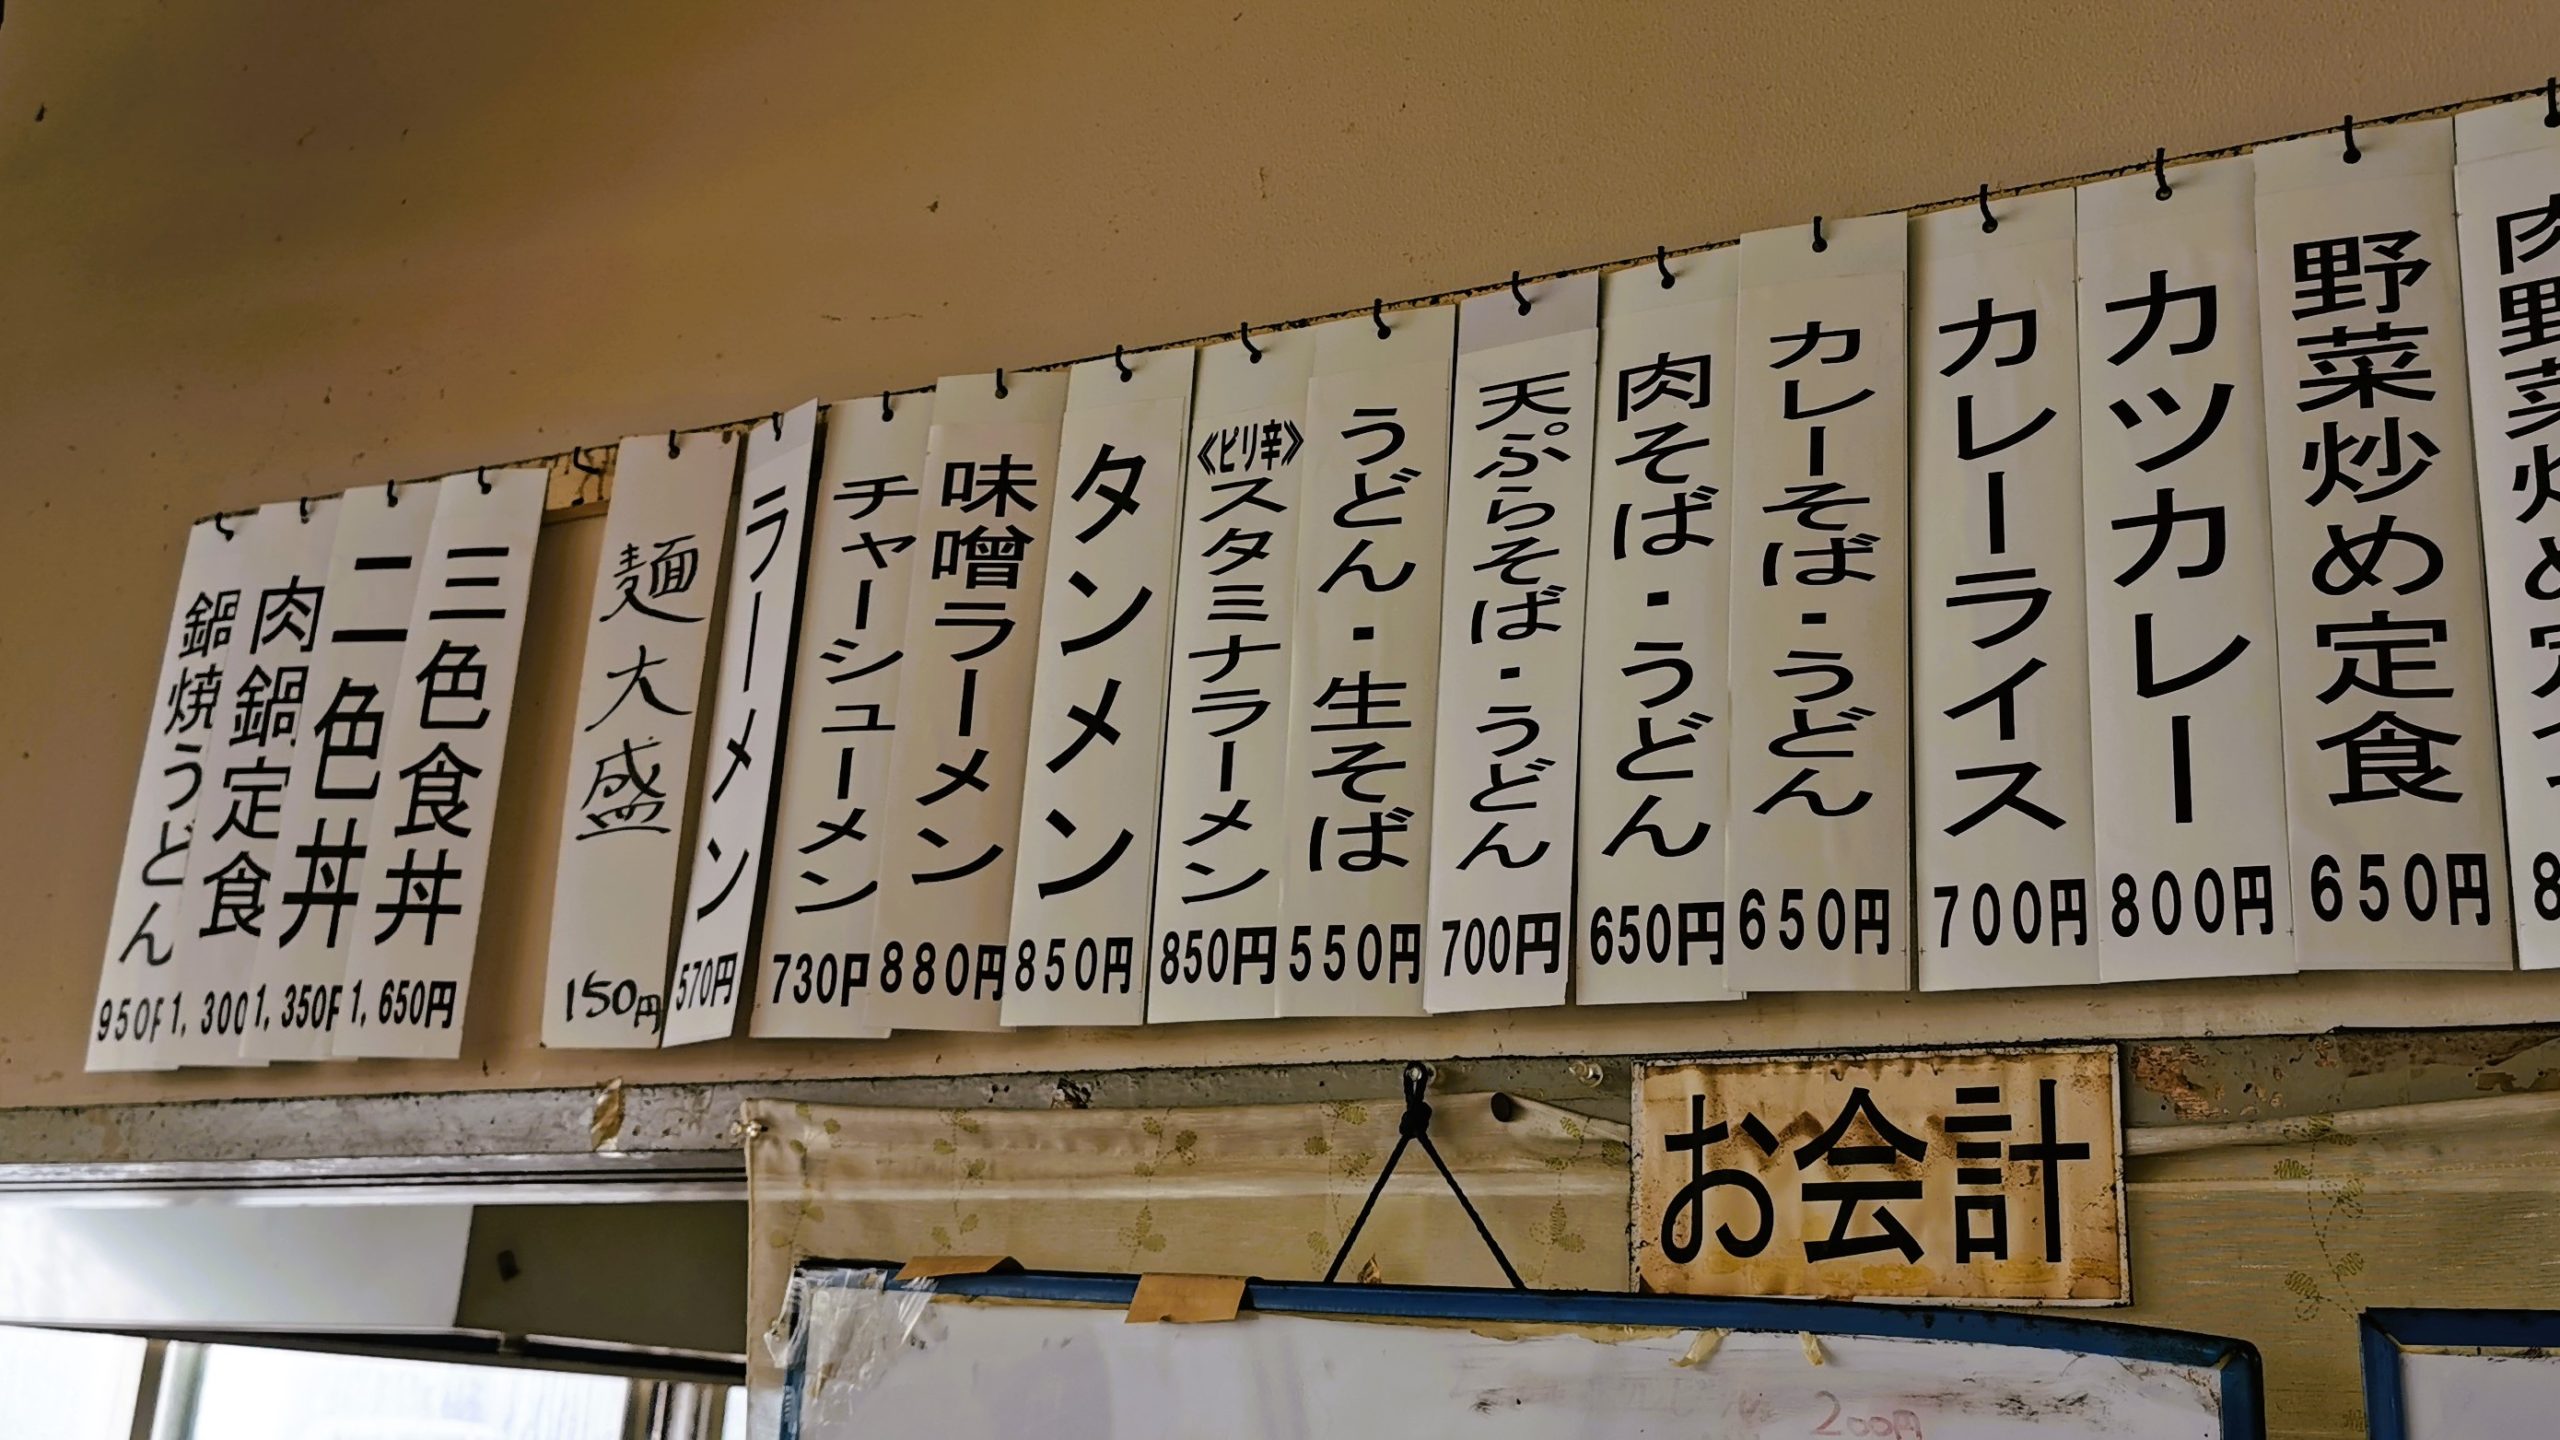 肉野菜炒め定
野菜炒め定食 650円
カツカレー 800円
カレーライス 700円
カレーそば・うどん 650円
肉そば・うどん 650円
天ぷらそば・うどん 700円
うどん・生そば 550円
《ピリ辛》スタミナラーメン 850円
タンメン 850円
味噌ラーメン 880円
チャーシューメン 730円
ラーメン 570円
麺大盛 150円
三色食丼 1,650円
二色丼 1,350円
肉鍋定食 1,300
鍋焼うどん 950円
お会計
200円